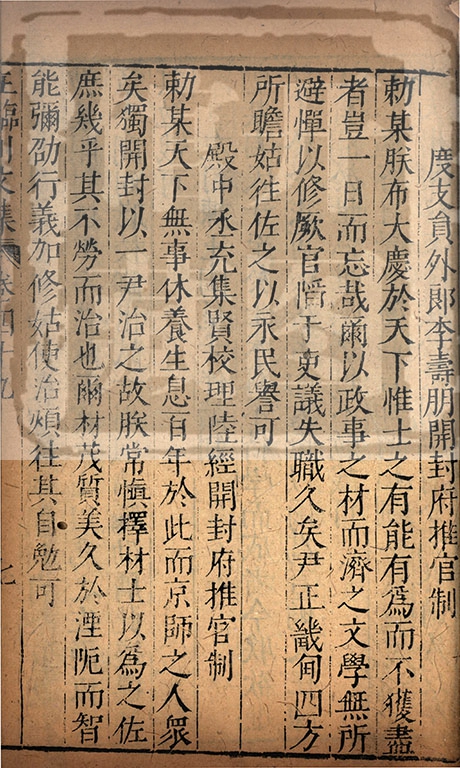 度支員外郎李壽朋開封府推官制
勅某朕布大慶於天下惟士之有能有爲而不獲盡
者豈一日而忘哉爾以政事之材而濟之文學無所
避憚以修厥官惛于吏議失職久矣尹正畿甸四方
所瞻姑徃佐之以永民譽可
殿中丞充集賢校理陸經開封府推官制
勅某天下無事休養生息百年於此而京師之人衆
矣獨開封以一尹治之故朕常愼擇材士以爲之佐
庶幾乎其不勞而治也爾材茂質美久於湮阨而智
能彌劭行義加修姑使治煩徃其自勉可
王臨川文集 卷四十九 七